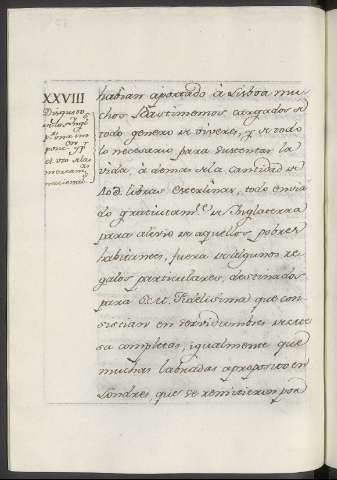 XXVIII
Disgusto
de los Ingl.s
p.r
habian aportado à Lisboa mu-
chos Bastimentos cargados de
todo genero de viveres, y de todo
lo necesario para sustentar la
vida, à demas de la cantidad de
libras Exterlinas, todo envia
do gratuitam.te de Inglaterra
para alivio de aquellos pobres
habitantes, fuera de algunos re-
galos particulares, destinados
para S. M. Fidelisima que con-
sistian en servidumbres de mesa
completas, igualmente que
muchas labradas aproposito en
Londres, que se remitieron por